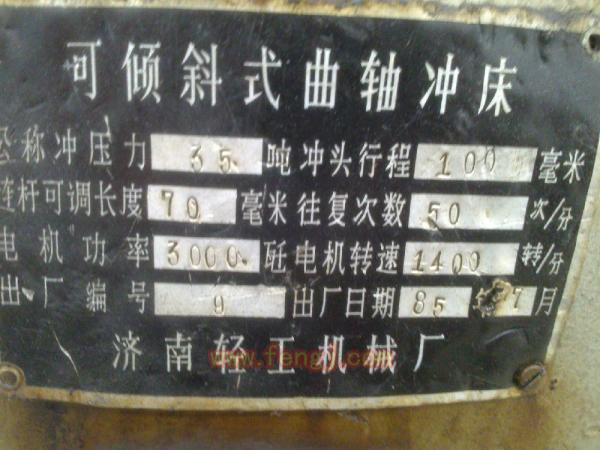 可倾斜式曲轴冲床
公称冲压力 35 吨 冲头行程 100 毫米
连杆可调长度 70 毫米 往复次数 50 次/分
电机功率 3000 瓩 电机转速 1400 转/分
出厂编号 9 出厂日期 85 7月
济南轻工机械厂